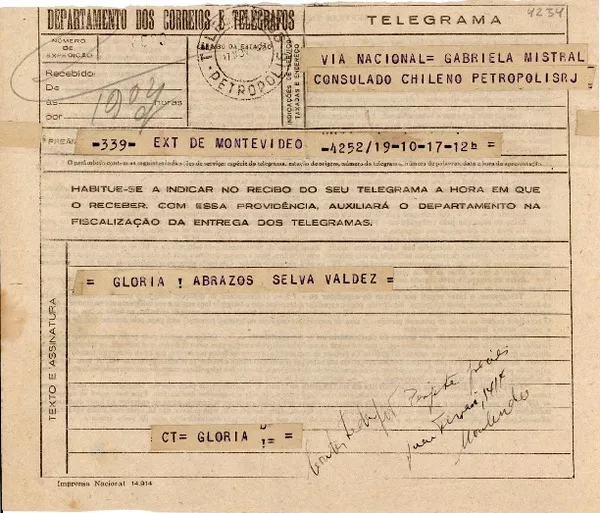 DEPARTAMENTO DOS CORREIOS E TELÉGRAFOS
TELEGRAMA
4234
NÚMERO DE EXPEDIÇÃO
CARIMBO DA ESTAÇÃO
PETROPOLIS
INDICAÇÕES DE SERVIÇO TAXADAS E ENDEREÇO
VIA NACIONAL= GABRIELA MISTRAL
CONSULADO CHILENO PETROPOLISRJ
Recebido
De
às horas
por
1902
PREÂM
-339- EXT DE MONTEVIDEO -4252/19-10-17-12h =
O preâmbulo contém as seguintes indicações de serviço: espécie do telegrama, estação de origem, número do telegrama, número de palavras, data e hora da apresentação.
HABITUE-SE A INDICAR NO RECIBO DO SEU TELEGRAMA A HORA EM QUE
O RECEBER. COM ESSA PROVIDÊNCIA, AUXILIARÁ O DEPARTAMENTO NA
FISCALIZAÇÃO DA ENTREGA DOS TELEGRAMAS.
TEXTO E ASSINATURA
= GLORIA ! ABRAZOS SELVA VALDEZ =
CT= GLORIA != =
Imprensa Nacional 14.914